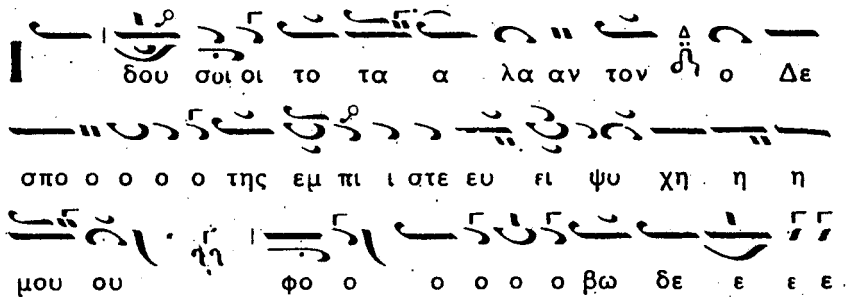 Ι δου σοι οι το τα α λα αν τον ο Δε
σπο ο ο ο ο της εμ πι ι στε ευ ει ψυ χη η η
μου ου φο ο ο ο ο ο βω δε ε ε ε